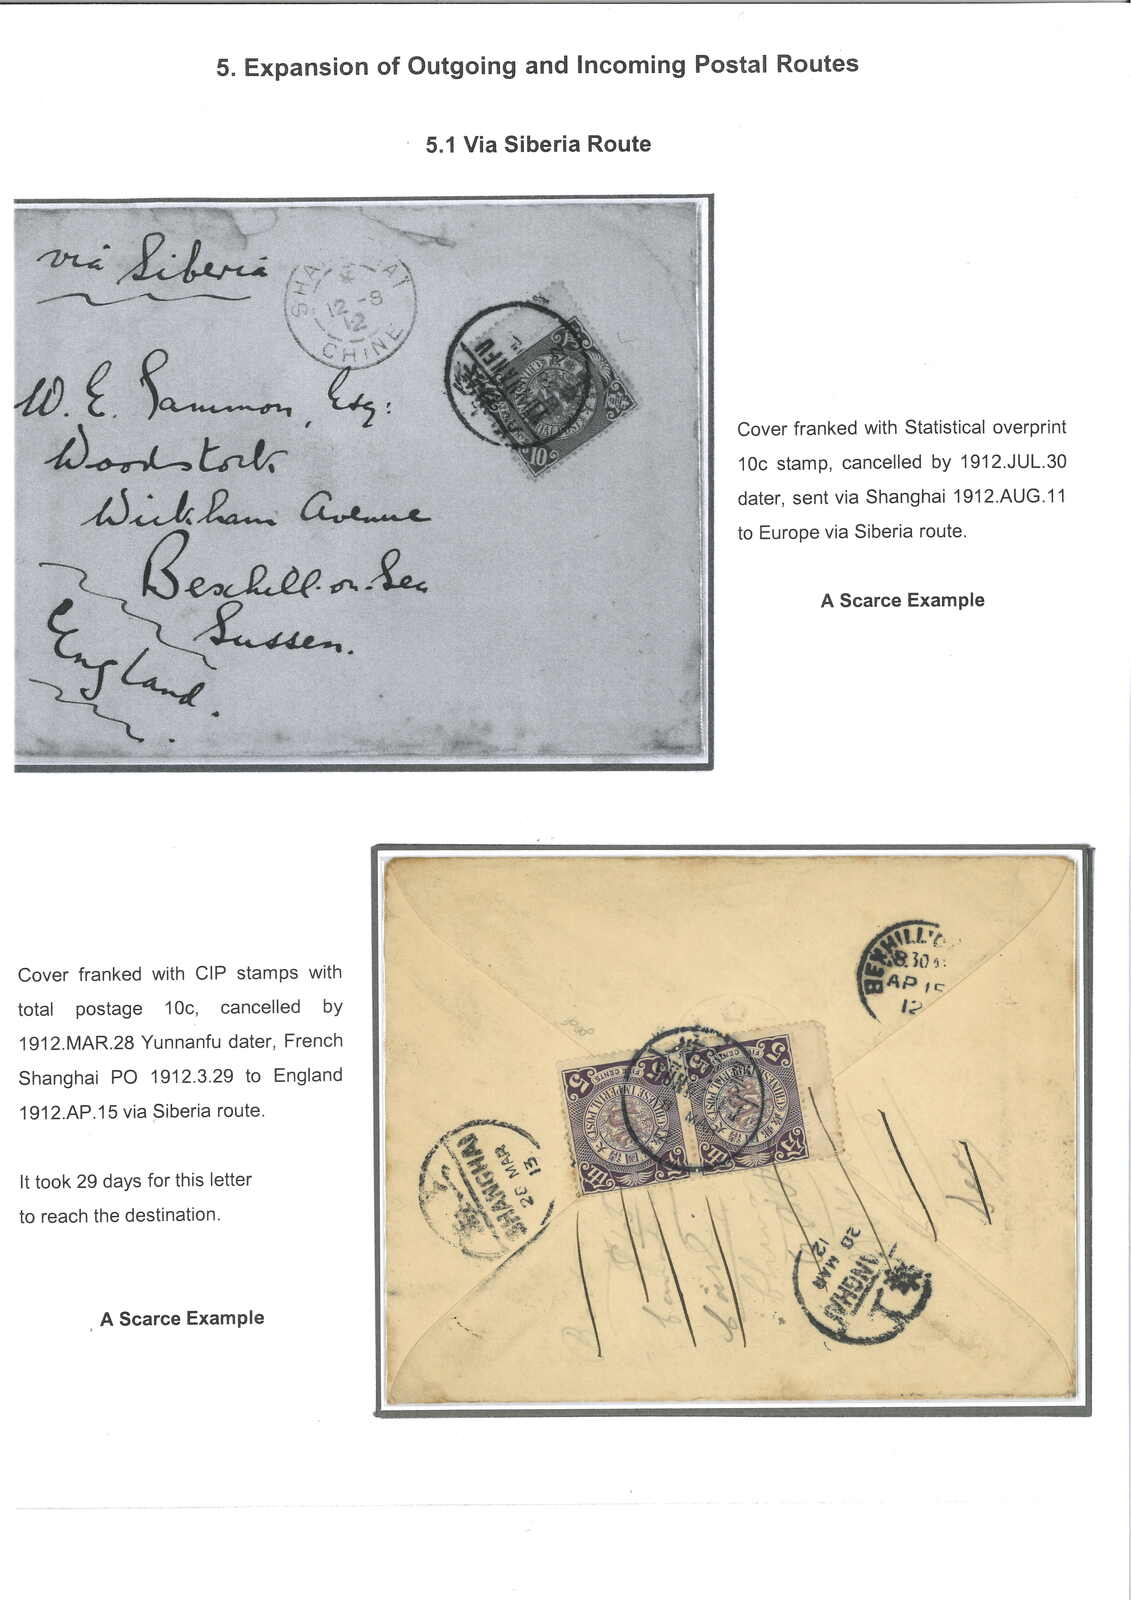 5. Expansion of Outgoing and Incoming Postal Routes
5.1 Via Siberia Route
via Siberia
12-8
12
CHINE
W. E. Sammon, Esq:
Woodstock
Wickham Avenue
Bexhill-on-Sea
Sussex.
England.
10
Cover franked with Statistical overprint
10c stamp, cancelled by 1912.JUL.30
dater, sent via Shanghai 1912.AUG.11
to Europe via Siberia route.
A Scarce Example
Cover franked with CIP stamps with
total postage 10c, cancelled by
1912.MAR.28 Yunnanfu dater, French
Shanghai PO 1912.3.29 to England
1912.AP.15 via Siberia route.
It took 29 days for this letter
to reach the destination.
A Scarce Example
BEXHILL-O
8.30
AP 15
12
5
FIVE CENTS
CHINESE IMPERIAL POST
5
FIVE CENTS
CHINESE IMPERIAL POST
SHANGHAI
28 MAR
13
28 MAR
12
Sey